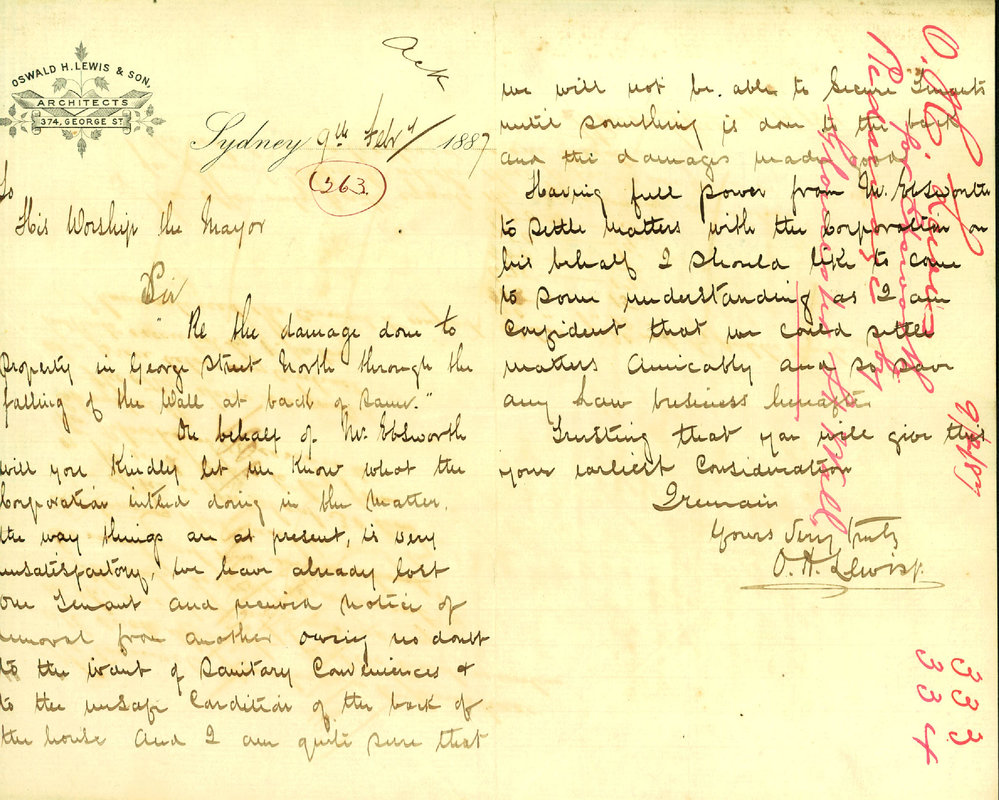 OSWALD H. LEWIS & SON,
ARCHITECTS
374, GEORGE ST.
Ack
Sydney 9th Feby 1887
263.
To
His Worship the Mayor
Sir
"Re the damage done to
property in George Street North through the
falling of the Wall at back of same."
On behalf of Mr. Ebsworth
will you kindly let me know what the
Corporation intend doing in the matter.
the way things are at present, is very
unsatisfactory, we have already lost
one Tenant and received notice of
removal from another owing no doubt
to the want of Sanitary Conveniences &
to the unsafe Condition of the back of
the house and I am quite sure that
we will not be able to Secure Tenants
until something is done to the back
and the damages made good
Having full power from Mr. Ebsworth
to settle matters with the Corporation on
his behalf I should like to come
to some understanding as I am
Confident that we could settle
matters amicably and so save
any Law business hereafter
Trusting that you will give this
your earliest Consideration
I remain
Yours Very truly
O. H. Lewis
O. H. Lewis
for Ebsworth
Re damage by
9/2/87
333
334